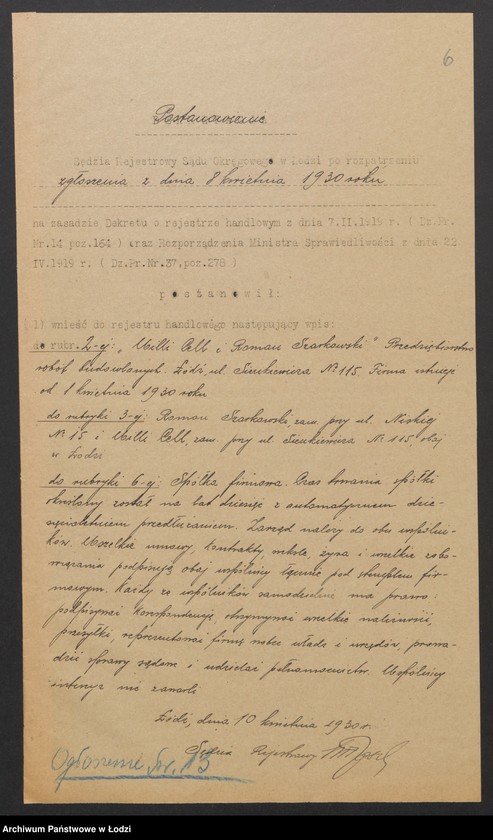 6
Postanowienie
Sędzia Rejestrowy Sądu Okręgowego w Łodzi po rozpatrzeniu
zgłoszenia z dnia 8 kwietnia 1930 roku
na zasadzie Dekretu o rejestrze handlowym z dnia 7.II.1919 r. ( Dz.Pr.
Nr.14 poz.164 ) oraz Rozporządzenia Ministra Sprawiedliwości z dnia 22
IV.1919 r. ( Dz.Pr.Nr.37,poz.278 )
p o s t a n o w i ł:
1) wnieść do rejestru handlowego następujący wpis:
do rubr. 2-ej: „Willi Cell i Roman Szarkowski" Przedsiębiorstwo
robót budowlanych. Łódź, ul. Sienkiewicza № 115. Firma istnieje
od 1 kwietnia 1930 roku
do rubryki 3-ej: Roman Szarkowski, zam. przy ul. Niskiej
№ 15 i Willi Cell, zam. przy ul. Sienkiewicza № 115, obaj
w Łodzi
do rubryki 6-ej: Spółka firmowa. Czas trwania spółki
określony został na lat dziesięć z automatycznem dzie-
sięcioletniem przedłużaniem. Zarząd należy do obu wspólni-
ków. Wszelkie umowy, kontrakty, weksle, żyra i wszelkie zobo-
wiązania podpisują obaj wspólnicy łącznie pod stemplem fir-
mowym. Każdy ze wspólników samodzielnie ma prawo:
podpisywać korespondencję, otrzymywać wszelkie należności,
przesyłki, reprezentować firmę wobec władz i urzędów, prowa-
dzić sprawy sądowe i udzielać pełnomocnictw. Wspólnicy
intercyz nie zawarli
Łódź, dnia 10 kwietnia 1930 r.
Sędzia Rejestrowy
Ogłoszenie
Archiwum Państwowe w Łodzi